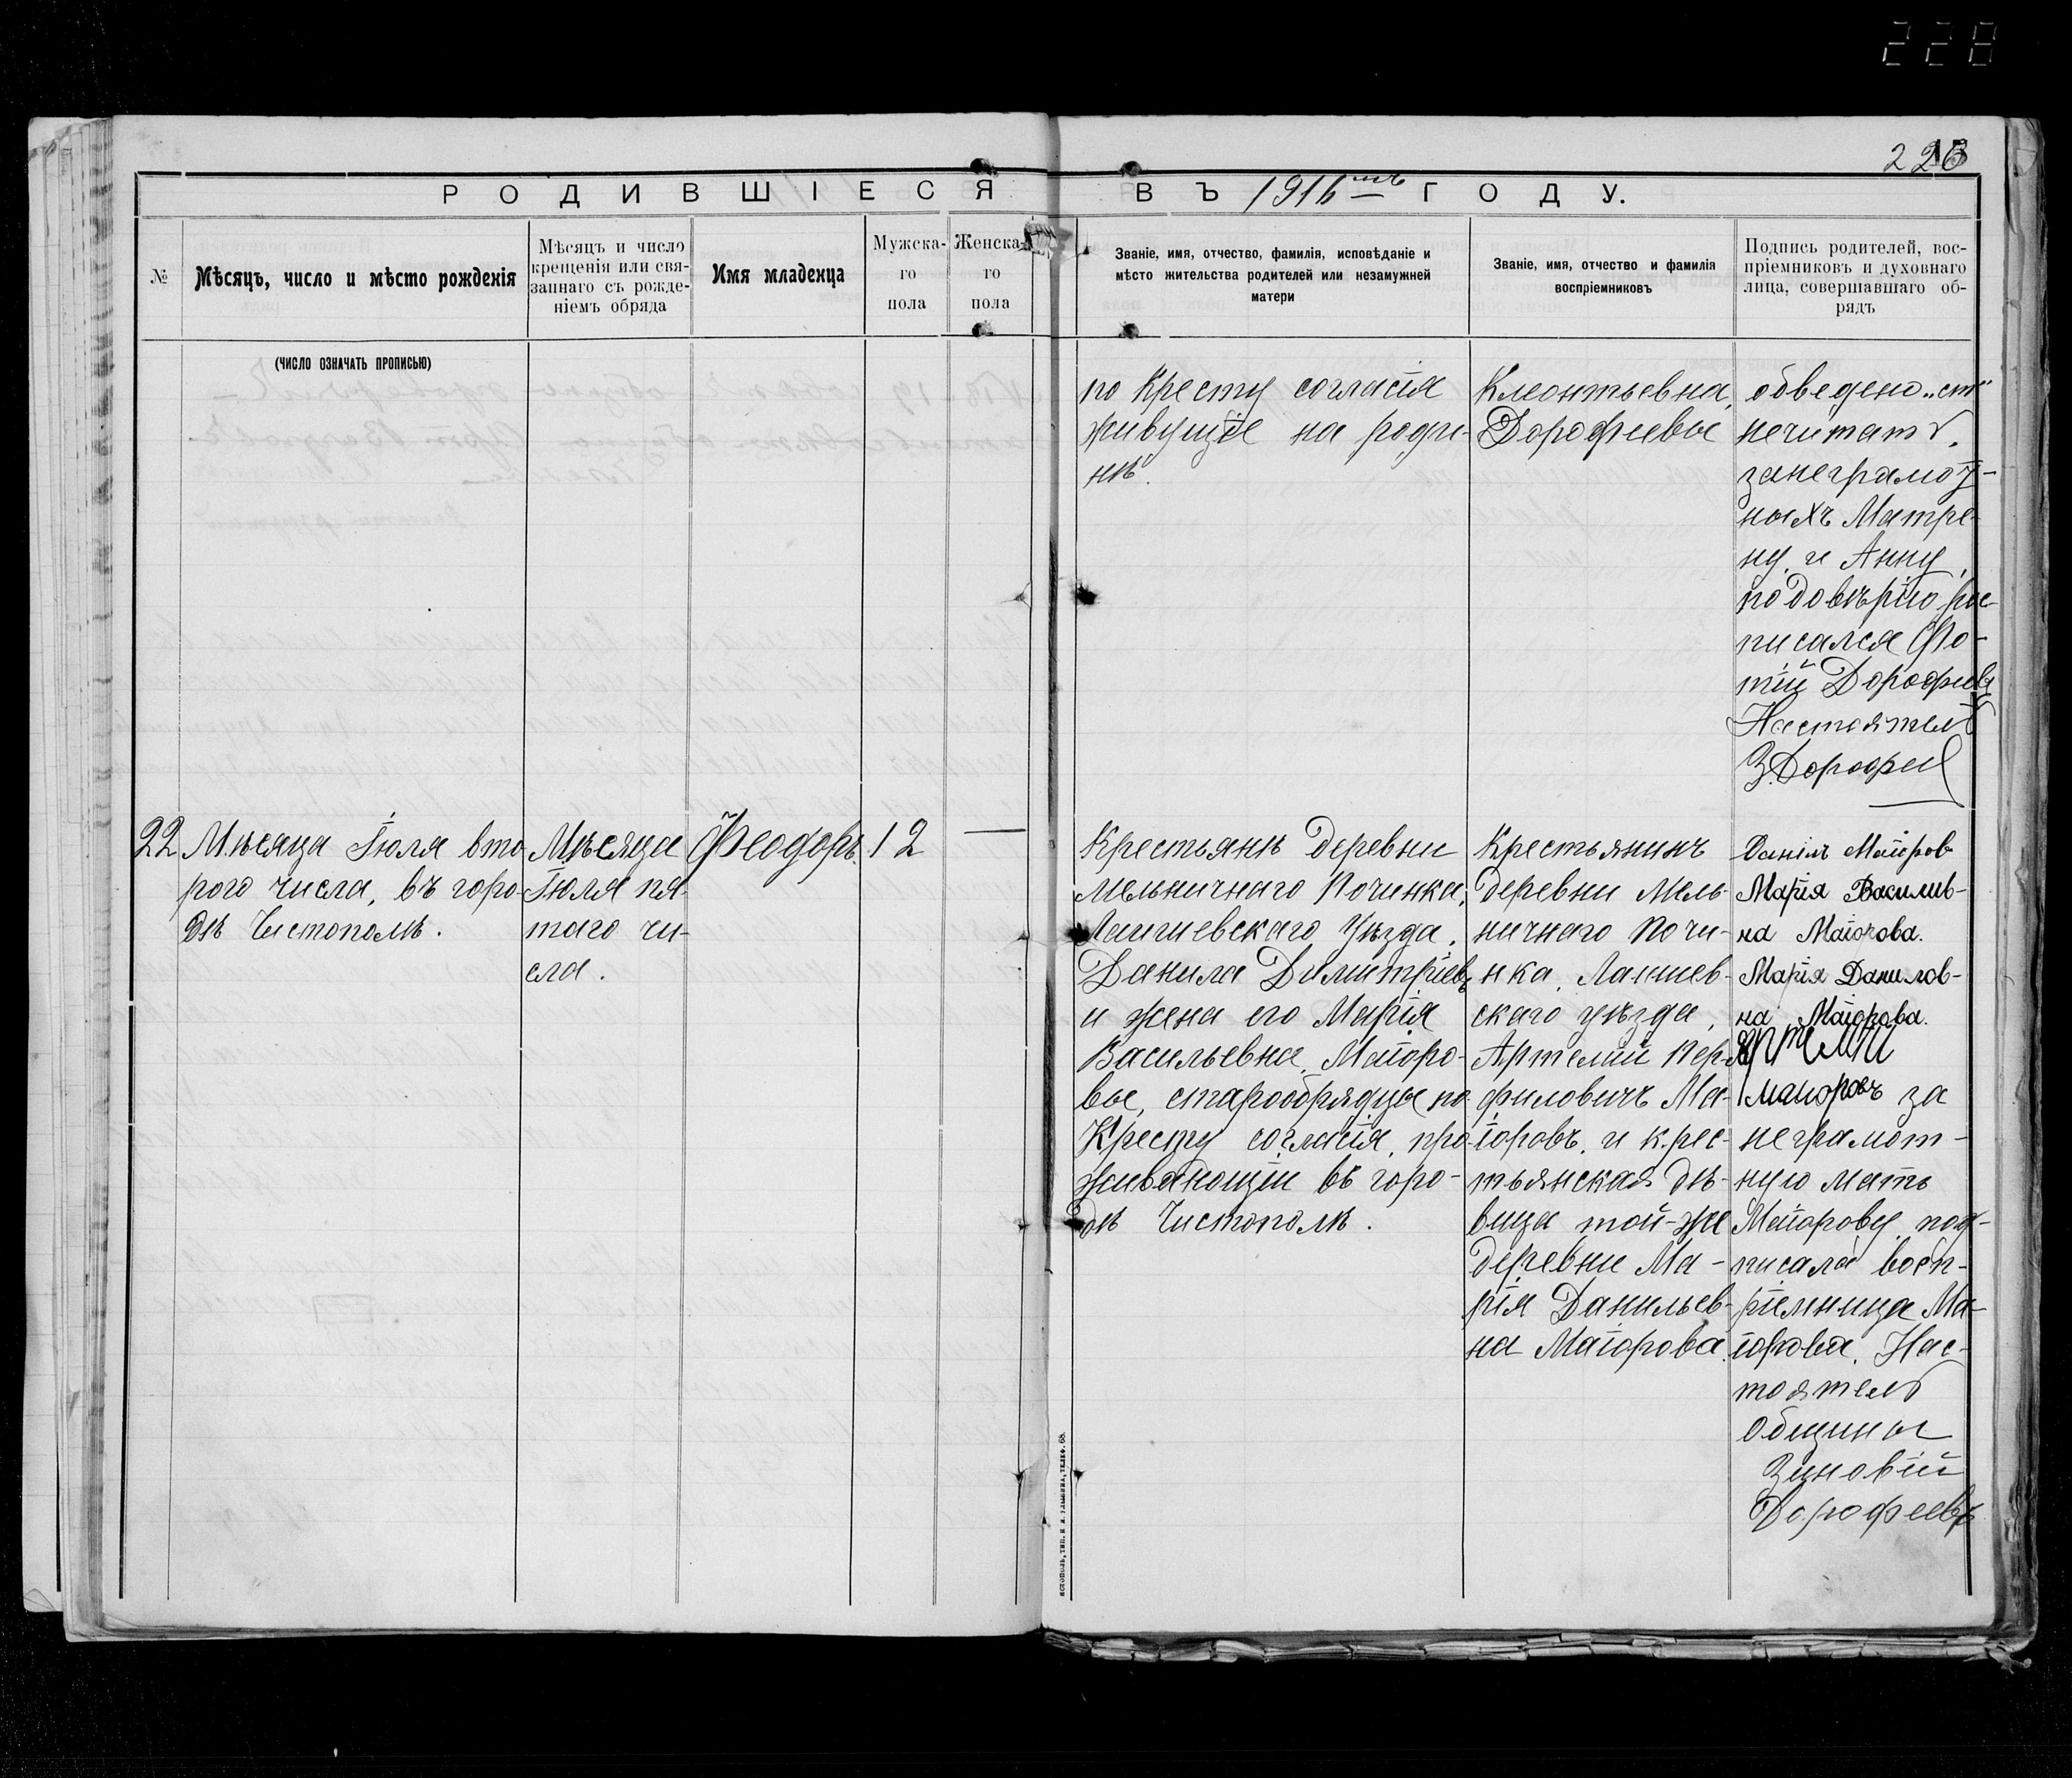 228
226
РОДИВШІЕСЯ ВЪ 1916мъ ГОДУ.
№
Мѣсяцъ, число и мѣсто рожденія
Мѣсяцъ и число
крещенія или свя-
заннаго съ рожде-
ніемъ обряда
Имя младенца
Мужска-
го
пола
Женска-
го
пола
Званіе, имя, отчество, фамилія, исповѣданіе и
мѣсто жительства родителей или незамужней
матери
Званіе, имя, отчество и фамилія
воспріемниковъ
Подпись родителей, вос-
пріемниковъ и духовнаго
лица, совершавшаго об-
рядъ
(ЧИСЛО ОЗНАЧАТЬ ПРОПИСЬЮ)
по кресту согласія
живущіе на роди-
нѣ.
Клеонтьевна,
Дорофеевы
обведено „ст"
нечитать.
занеграмот-
ныхъ Матре-
ну и Анну,
подовѣрію рос-
писался Фо-
тій Дорофеев
Настоятель
З. Дорофеев
22
Мѣсяца Іюля вто
рого числа, въ горо-
дѣ Чистополѣ.
Мѣсяца
Іюля пя-
таго чи-
сла.
Феодоръ.
12
—
Крестьянъ деревни
Мельничнаго Починка,
Лаишевскаго Уѣзда,
Данила Димитріевъ
и жена его Марія
Васильевна, Майоро-
вы, старообрядцы по
Кресту согласія, про-
живающіи въ горо-
дѣ Чистополѣ.
Крестьянинъ
деревни Мель-
ничнаго Почи-
нка, Лаишев-
скаго уѣзда,
Артемий Пер-
филовичъ Ма-
іоровъ, и крес-
тьянская дѣ-
вица той-же
деревни Ма-
рія Данильев-
на Маіорова.
Данілъ Маіоров
Марія Василив-
на Маіорова.
Марія Данилов-
на Маіорова.
Артемий
маиоровъ за
неграмот-
ную мать
Маіорову под-
писала восп-
ріемница Ма-
іорова. Нас-
тоятель
общины
Зиновій
Дорофеевъ